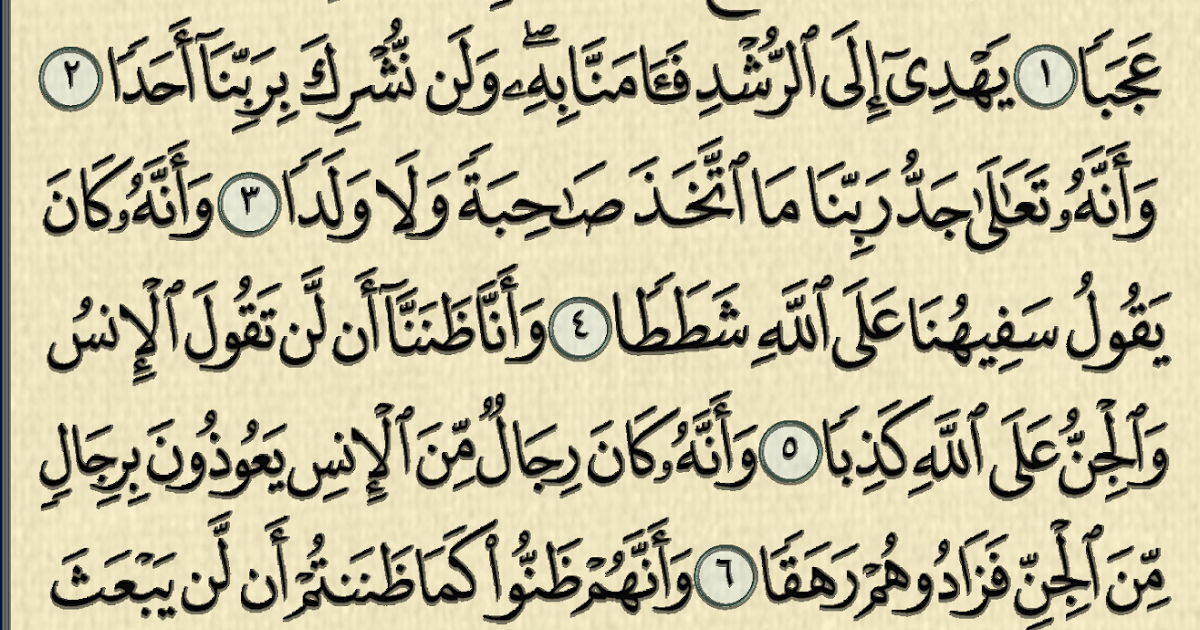 عَجَبًا ١ يَهْدِىٓ إِلَى ٱلرُّشْدِ فَـَٔامَنَّا بِهِۦ ۖ وَلَن نُّشْرِكَ بِرَبِّنَآ أَحَدًا ٢
وَأَنَّهُۥ تَعَـٰلَىٰ جَدُّ رَبِّنَا مَا ٱتَّخَذَ صَـٰحِبَةً وَلَا وَلَدًا ٣ وَأَنَّهُۥ كَانَ
يَقُولُ سَفِيهُنَا عَلَى ٱللَّهِ شَطَطًا ٤ وَأَنَّا ظَنَنَّآ أَن لَّن تَقُولَ ٱلْإِنسُ
وَٱلْجِنُّ عَلَى ٱللَّهِ كَذِبًا ٥ وَأَنَّهُۥ كَانَ رِجَالٌ مِّنَ ٱلْإِنسِ يَعُوذُونَ بِرِجَالٍ
مِّنَ ٱلْجِنِّ فَزَادُوهُمْ رَهَقًا ٦ وَأَنَّهُمْ ظَنُّوا۟ كَمَا ظَنَنتُمْ أَن لَّن يَبْعَثَ